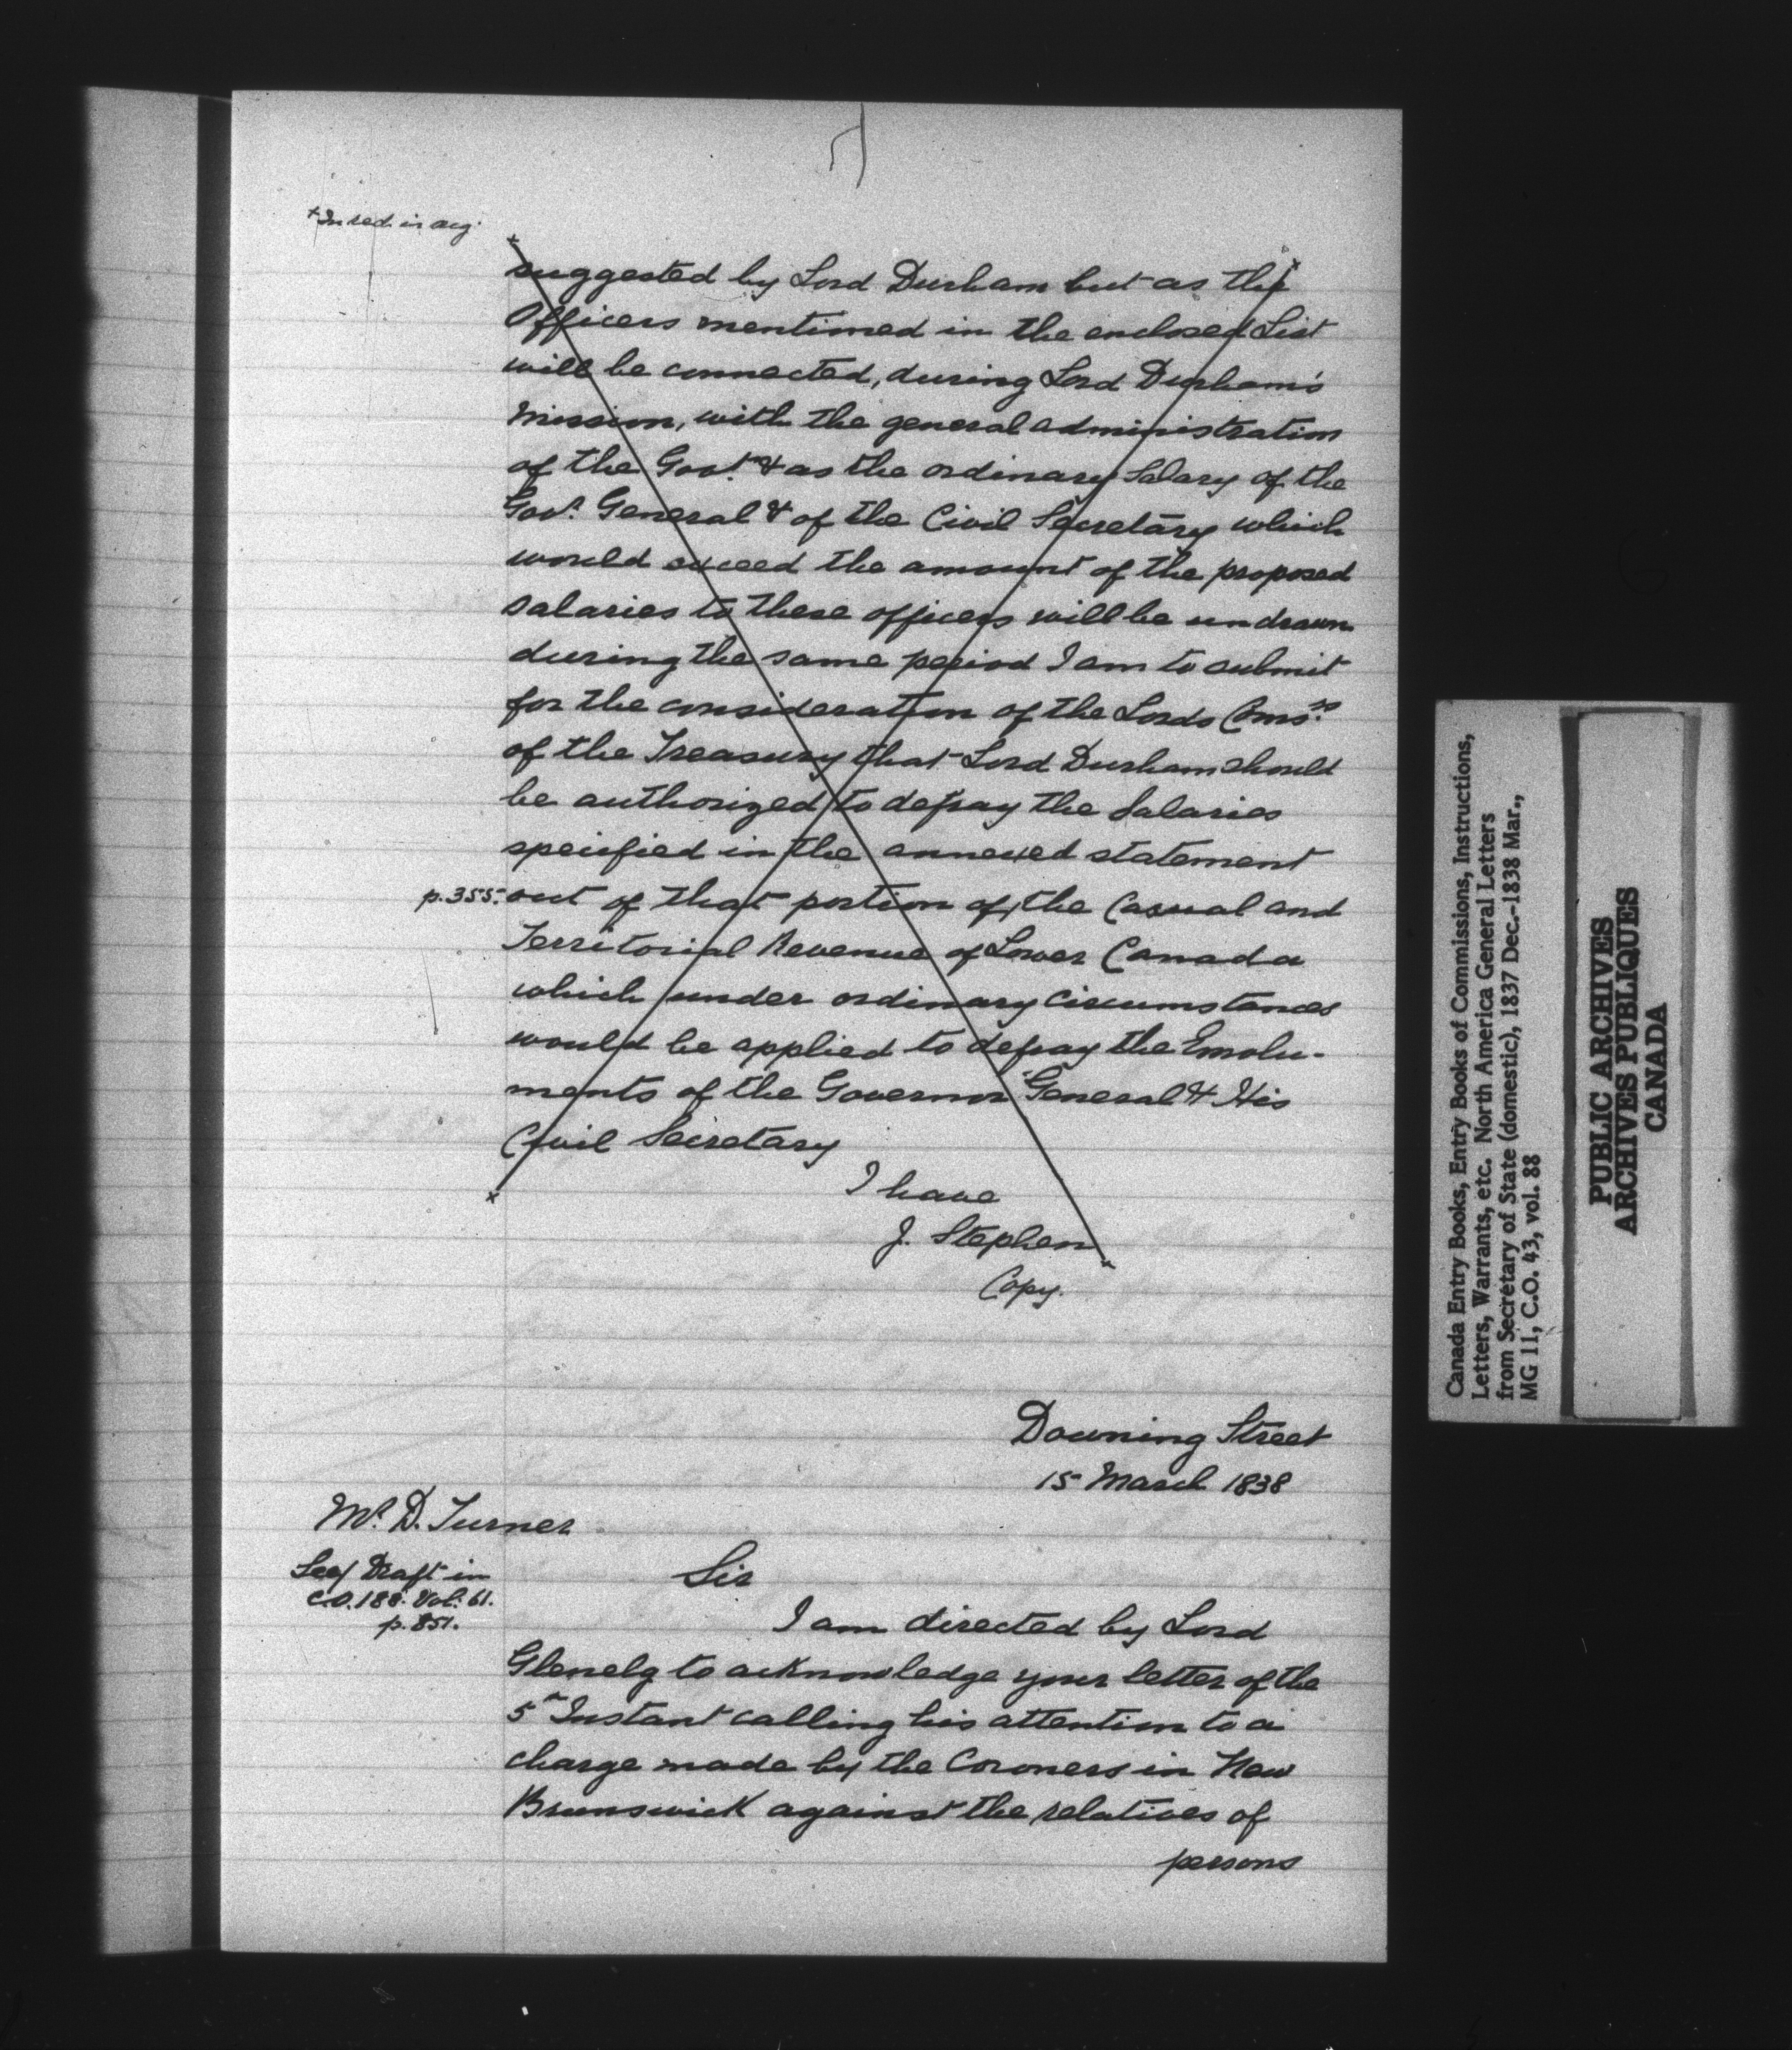 + In red in orig.
suggested by Lord Durham but as the
Officers mentioned in the enclosed List
will be connected, during Lord Durham's
Mission, with the general administration
of the Govt. & as the ordinary Salary of the
Govr. General & of the Civil Secretary which
would exceed the amount of the proposed
salaries to these officers will be undrawn
during the same period I am to submit
for the consideration of the Lords Comsrs.
of the Treasury that Lord Durham should
be authorized to defray the Salaries
specified in the annexed statement
p. 355. out of that portion of the Casual and
Territorial Revenue of Lower Canada
which under ordinary circumstances
would be applied to defray the Emolu-
ments of the Governor General & His
Civil Secretary
I have
J. Stephen
Copy.
Downing Street
15 March 1838
Mr. D. Turner
See Draft in
C.O. 188. Vol. 61.
p. 851.
Sir
I am directed by Lord
Glenelg to acknowledge your letter of the
5th Instant calling his attention to a
charge made by the Coroners in New
Brunswick against the relatives of
persons
Canada Entry Books, Entry Books of Commissions, Instructions,
Letters, Warrants, etc. North America General Letters
from Secretary of State (domestic), 1837 Dec.-1838 Mar.,
MG 11, C.O. 43, vol. 88
PUBLIC ARCHIVES
ARCHIVES PUBLIQUES
CANADA